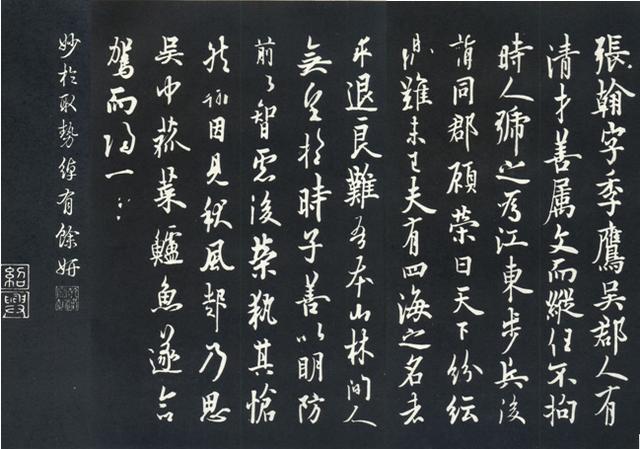 張翰字季鷹吳郡人有
清才善属文而縱任不拘
時人號之為江東步兵後
謂同郡顧榮曰天下紛紜
禍難未已夫有四海之名者
求退良難吾本山林間人
無望於時子善以明防
前以智慮後榮執其愴
然翰因見秋風起乃思
吳中菰菜鱸魚遂命
駕而歸
妙於取勢綽有餘妍
紹興